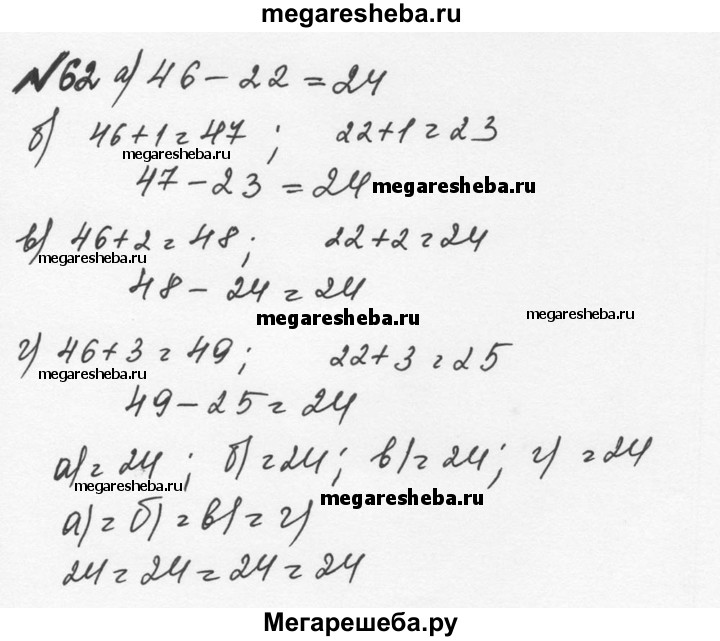 megaresheba.ru
№62 а) 46 - 22 = 24
б) 46+1=47 ; 22+1=23
megaresheba.ru
47 - 23 = 24 megaresheba.ru
в) 46+2=48 ; 22+2=24
megaresheba.ru
48 - 24 = 24
megaresheba.ru megaresheba.ru
г) 46+3=49 ; 22+3=25
megaresheba.ru
49 - 25 = 24
а)=24 ; б)=24 ; в)=24 ; г)=24
megaresheba.ru megaresheba.ru
а)=б)=в)=г)
24=24=24=24
Мегарешеба.ру